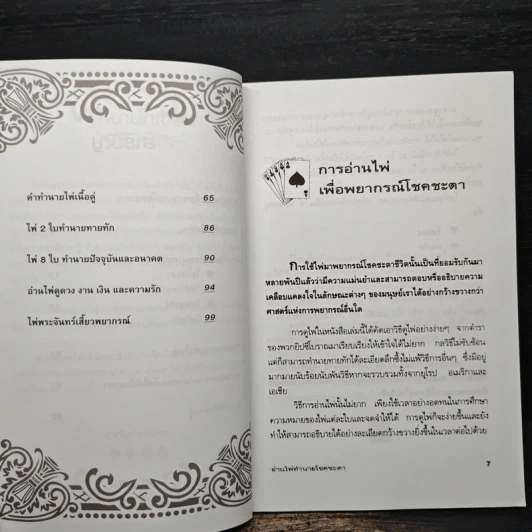 คำทำนายไพ่เนื้อคู่ 65
ไพ่ 2 ใบทำนายทายทัก 86
ไพ่ 8 ใบ ทำนายปัจจุบันและอนาคต 90
อ่านไพ่ดูดวง งาน เงิน และความรัก 94
ไพ่พระจันทร์เสี้ยวพยากรณ์ 99
การอ่านไพ่
เพื่อพยากรณ์โชคชะตา
การใช้ไพ่มาพยากรณ์โชคชะตาชีวิตนั้นเป็นที่ยอมรับกันมา
หลายพันปีแล้วว่ามีความแม่นยำและสามารถตอบหรืออธิบายความ
เคลื่อนแคลงใจในลักษณะต่างๆ ของมนุษย์เราได้อย่างกว้างขวางกว่า
ศาสตร์แห่งการพยากรณ์อื่นใด
การดูไพ่ในหนังสือเล่มนี้ได้คัดเอาวิธีดูไพ่อย่างง่ายๆ จากตำรา
ของพวกยิปซีโบราณมาเรียบเรียงให้เข้าใจได้ไม่ยาก กลวิธีไม่ซับซ้อน
แต่ก็สามารถทำนายทายทักได้ละเอียดลึกซึ้งไม่แพ้วิธีการอื่นๆ ซึ่งมีอยู่
มากมายนับร้อยนับพันวิธีหากจะรวบรวมทั้งจากยุโรป อเมริกาและ
เอเชีย
วิธีการอ่านไพ่นั้นไม่ยาก เพียงใช้เวลาอย่างอดทนในการศึกษา
ความหมายของไพ่แต่ละใบและจดจำให้ได้ การดูไพ่ก็จะง่ายขึ้นและยัง
ทำให้สามารถอธิบายได้อย่างละเอียดกว้างขวางยิ่งขึ้นในเวลาต่อไปด้วย
อ่านไพ่ทำนายโชคชะตา 7